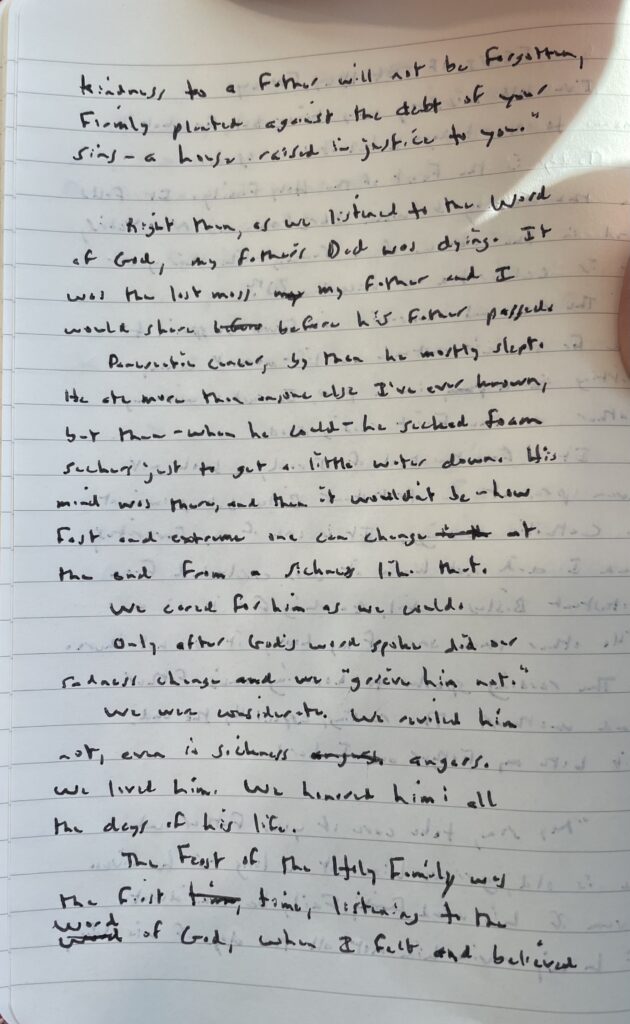 kindness to a Father will not be forgotten,
Firmly planted against the debt of your
sins - a house raised in justice to you."
Right then, as we listened to the Word
of God, my Father's Dad was dying. It
was the last mass my my Father and I
would share before before his Father passed.
Pancreatic cancer, by then he mostly slept.
He ate more than anyone else I've ever known,
but then - when he could - he sucked foam
suckers just to get a little water down. His
mind was there, and then it wouldn't be - how
fast and extreme one can change at
the end from a sickness like that.
We cared for him as we could.
Only after God's word spoke did our
sadness change and we "grieve him not."
We were considerate. We reviled him
not, even in sickness angers.
We loved him. We honored him: all
the days of his life.
The Feast of the Holy Family was
the first time, time, listening to the
word
word of God, when I felt and believed